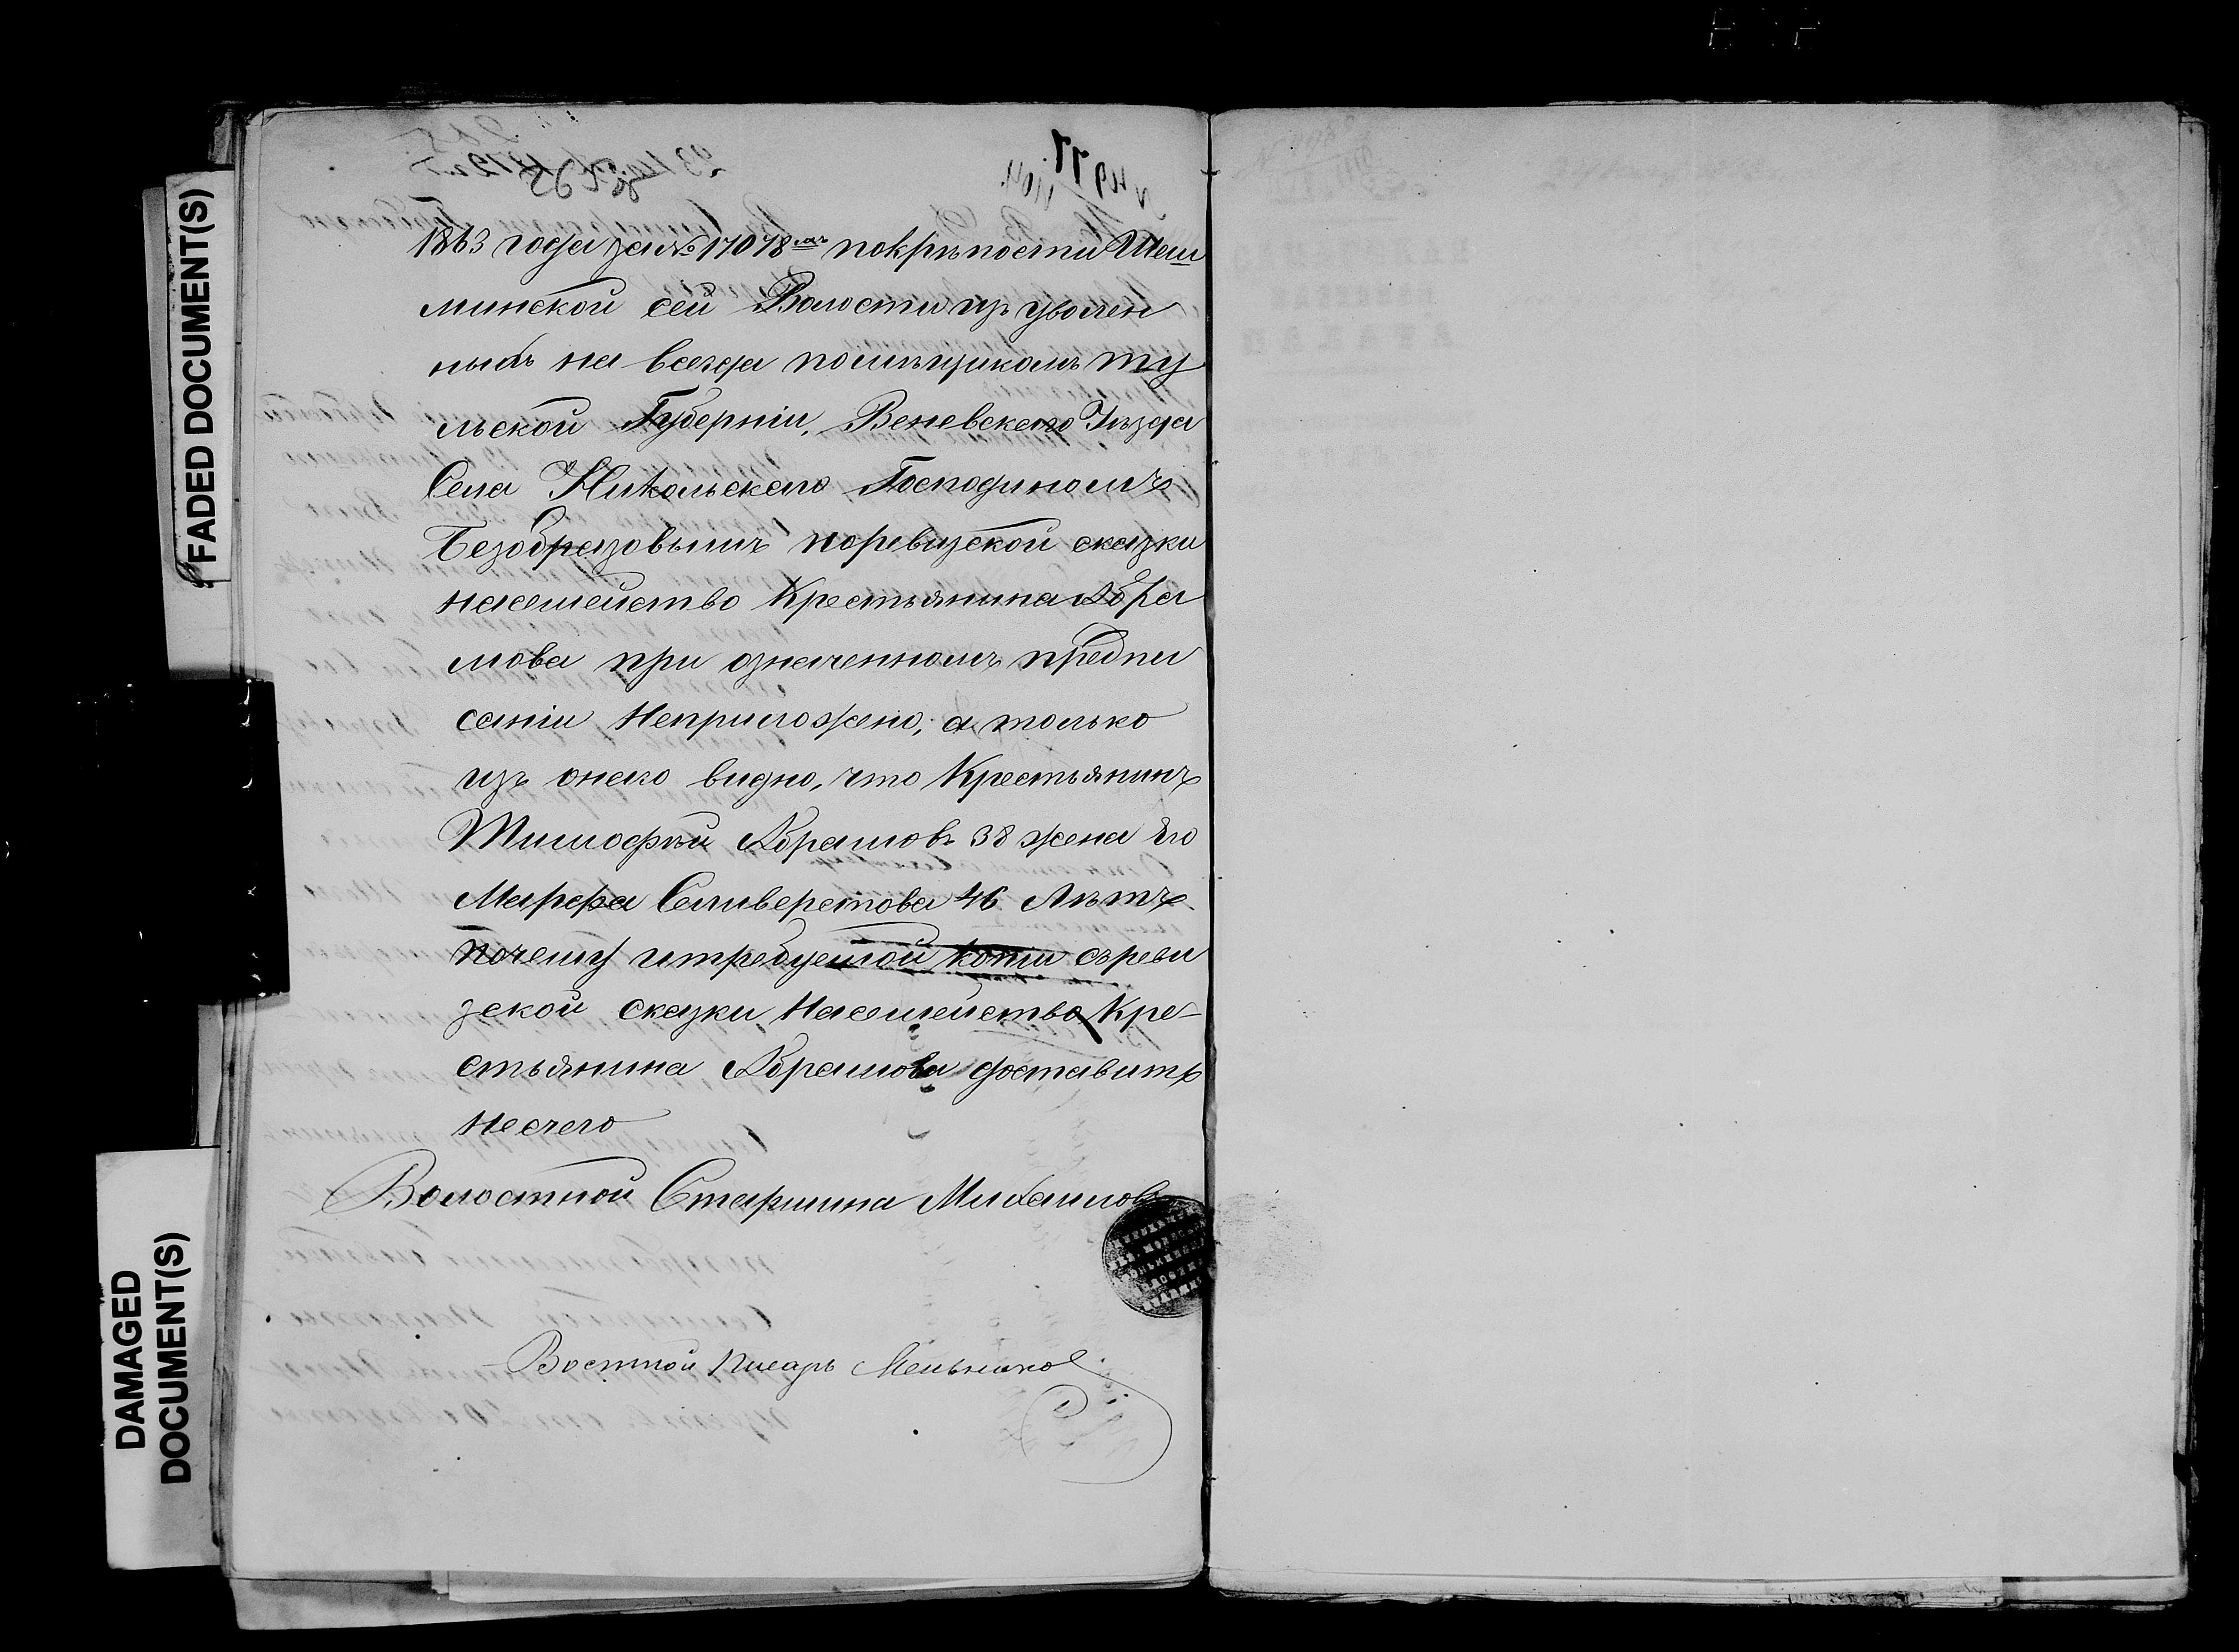 FADED DOCUMENT(S)
DAMAGED
DOCUMENT(S)
1863 года за № 17078мъ покрѣпости Шеш
минской сей Волости изъ уволен
ныхъ на всегда помѣщикомъ ту
льской Губерніи, Веневскаго Уѣзда
Села Никольскаго Господиномъ
Безобразовымъ поревизской сказки
насемейство Крестьянина Абра
мова при означенномъ предпи
саніи Неприложено; а только
изъ онаго видно, что Крестьянинъ
Тимофѣй Абрамовъ 38 жена Его
Марфа Селиверстова 46 Лѣтъ
почему итребуемой копіи съреви
зской сказки Насемейство Кре-
стьянина Абрамова доставить
Несчего
Волостной Старшина Михаиловъ
Востной Писарь Мельников